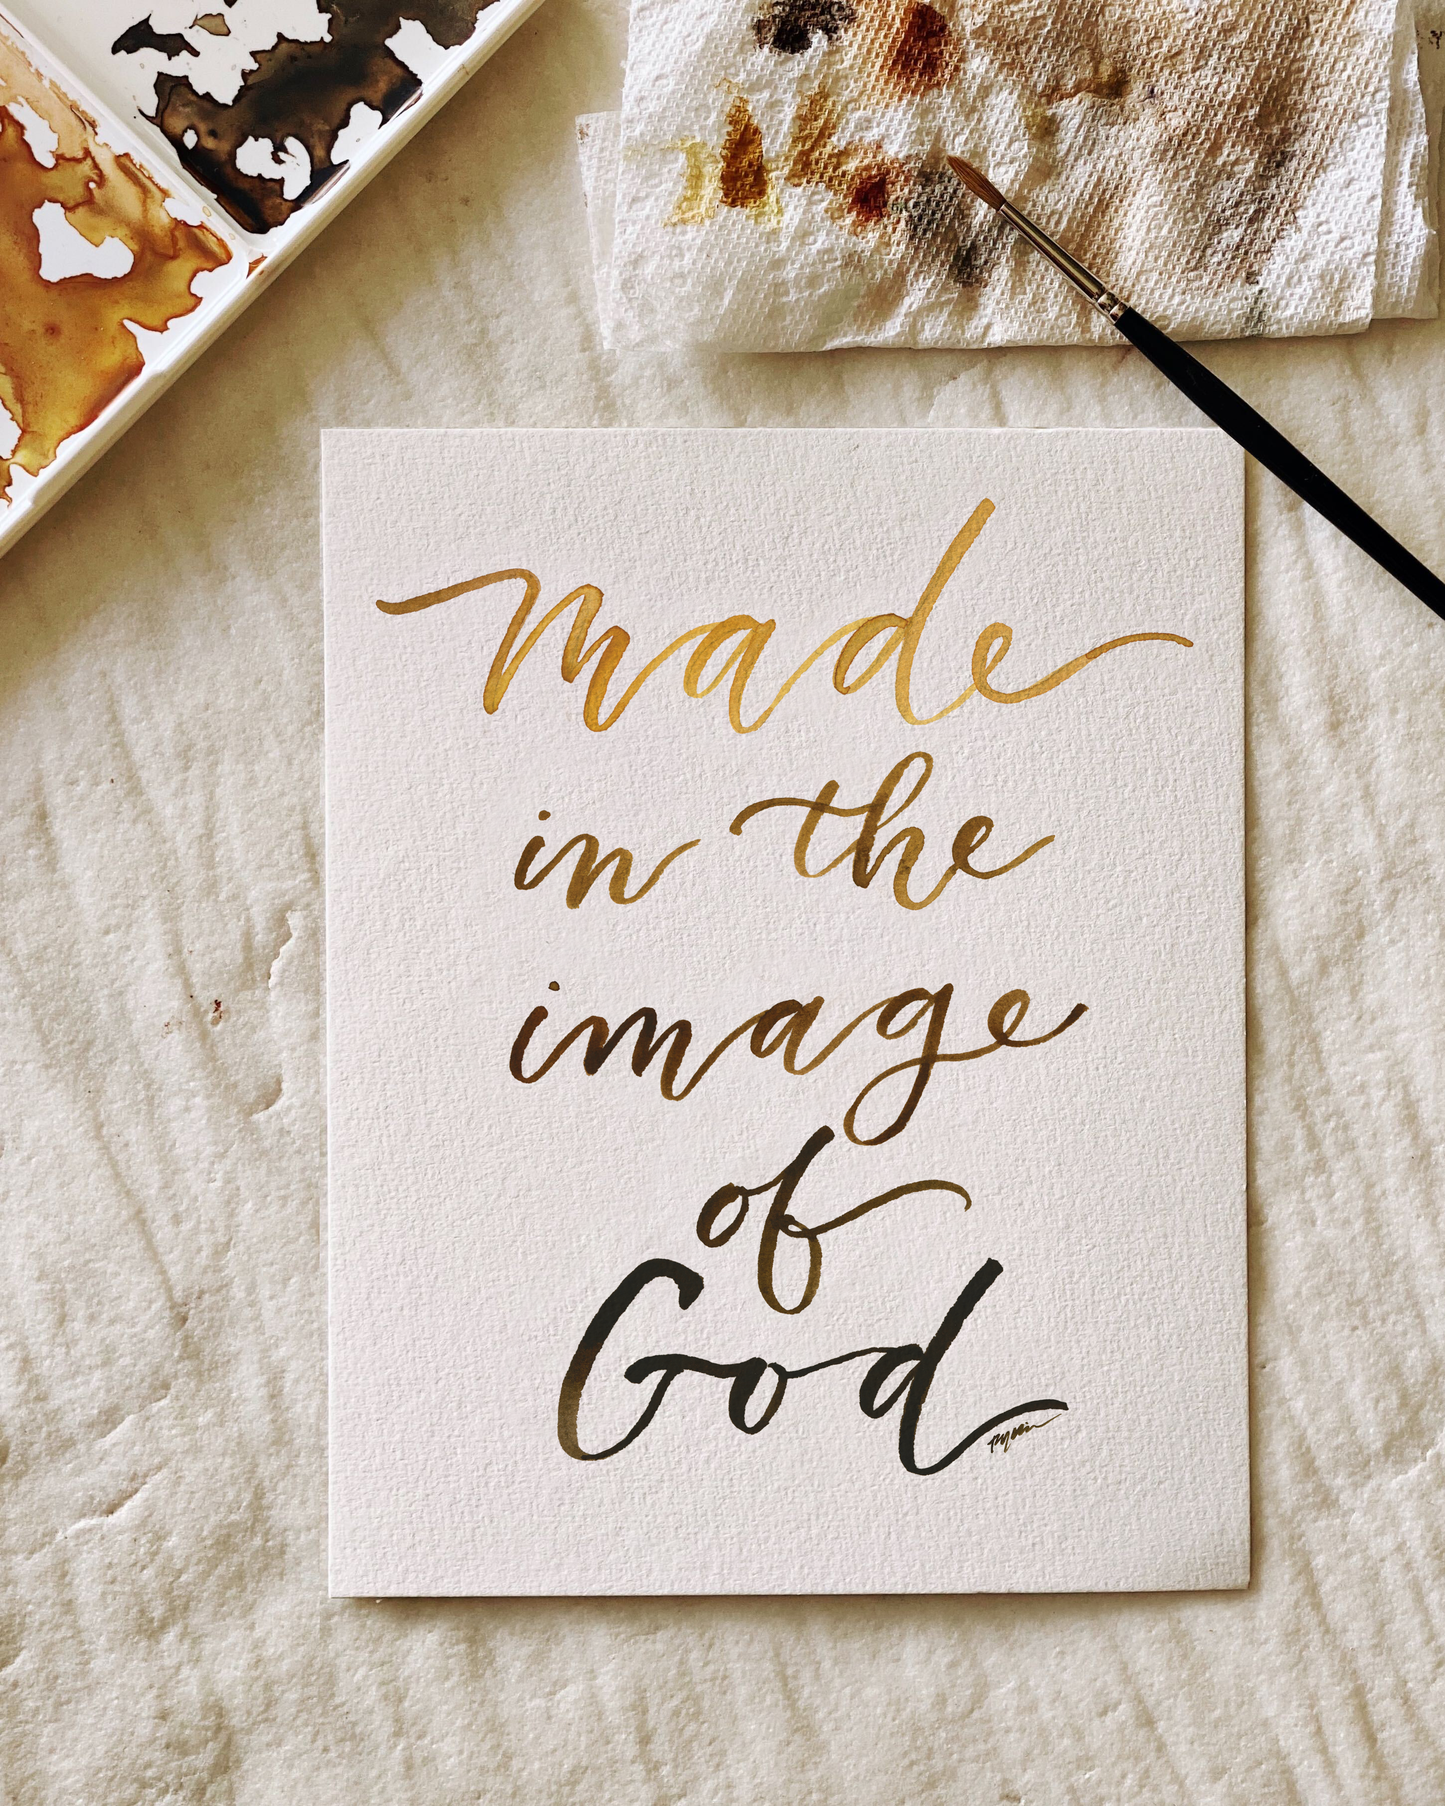 made
in the
image
of
God